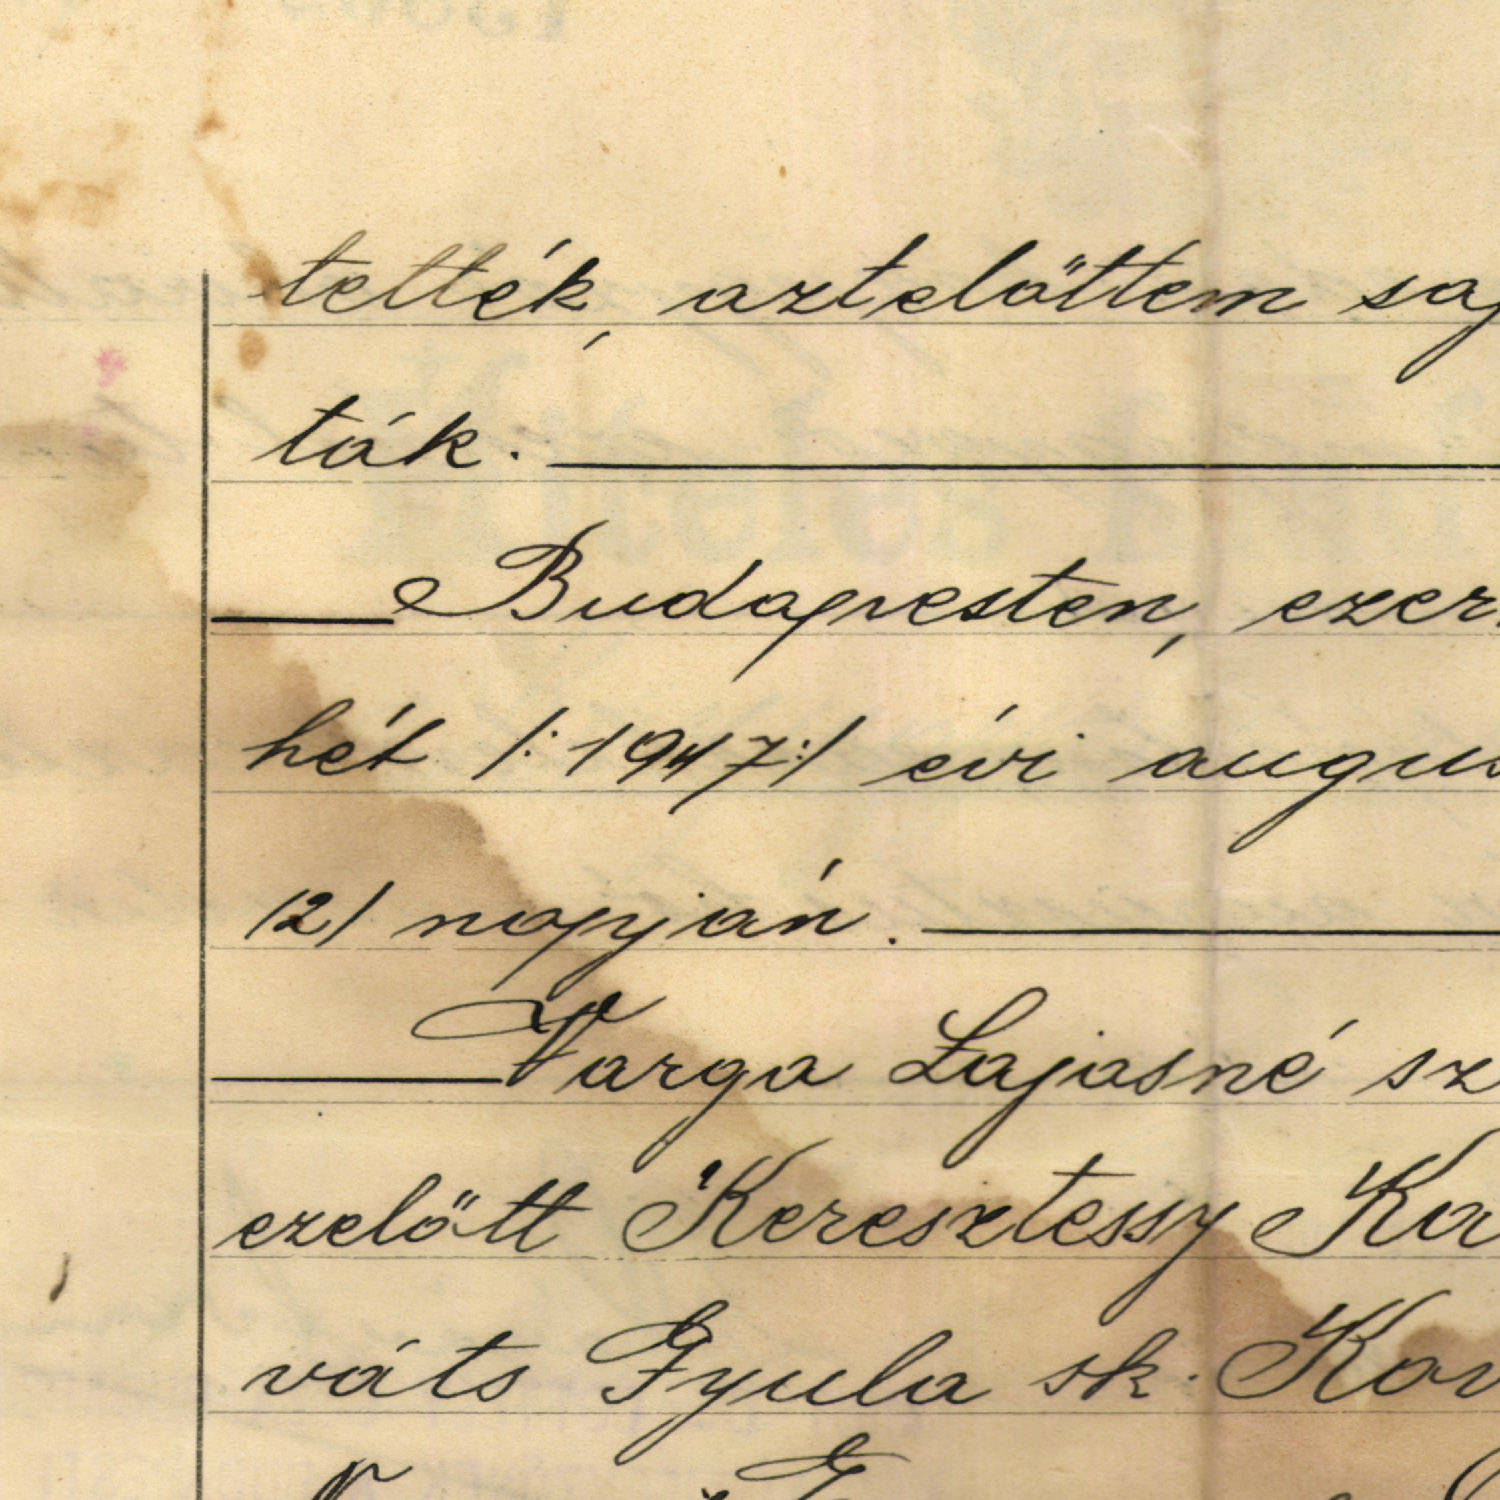 tették, azt előttem saj
ták.
Budapesten, ezer
hét /:1947:/ évi augus
/2/ napján.
Varga Lajosné sz
ezelőtt Keresztessy Ka
váts Gyula sk. Kov